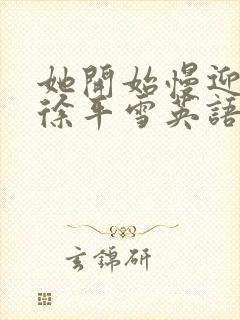 她開始慢迎
徐平雪英語
玄錦研